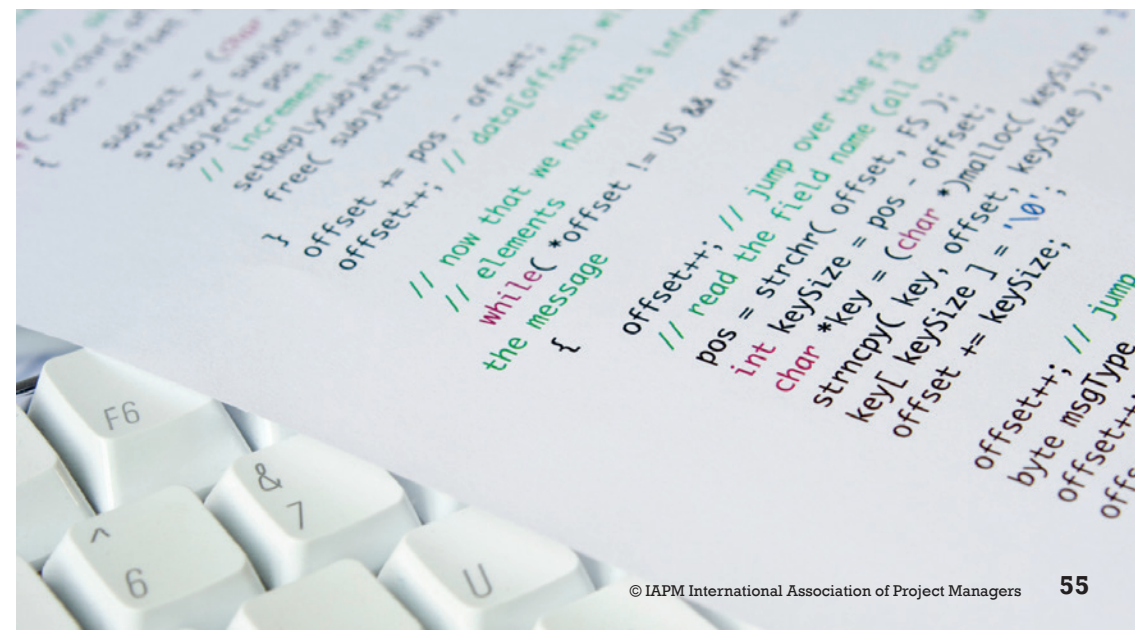 subject = (char
strncpy( subject,
subject[ pos - off
// increment the
setReplySubject( sub
free( subject );
}
offset += pos - offset;
offset++; // data[offset]
// now that we have this infor
// elements
while( *offset != US && offset
the message
{
offset++; // jump over the FS
// read the field name (all chars
pos = strchr( offset, FS );
int keySize = pos - offset;
char *key = (char *)malloc( keySize +
strncpy( key, offset, keySize );
key[ keySize ] = '\0';
offset += keySize;
offset++; // jump
byte msgType
offset++
offs
F6
&
7
^
6
U
© IAPM International Association of Project Managers 55